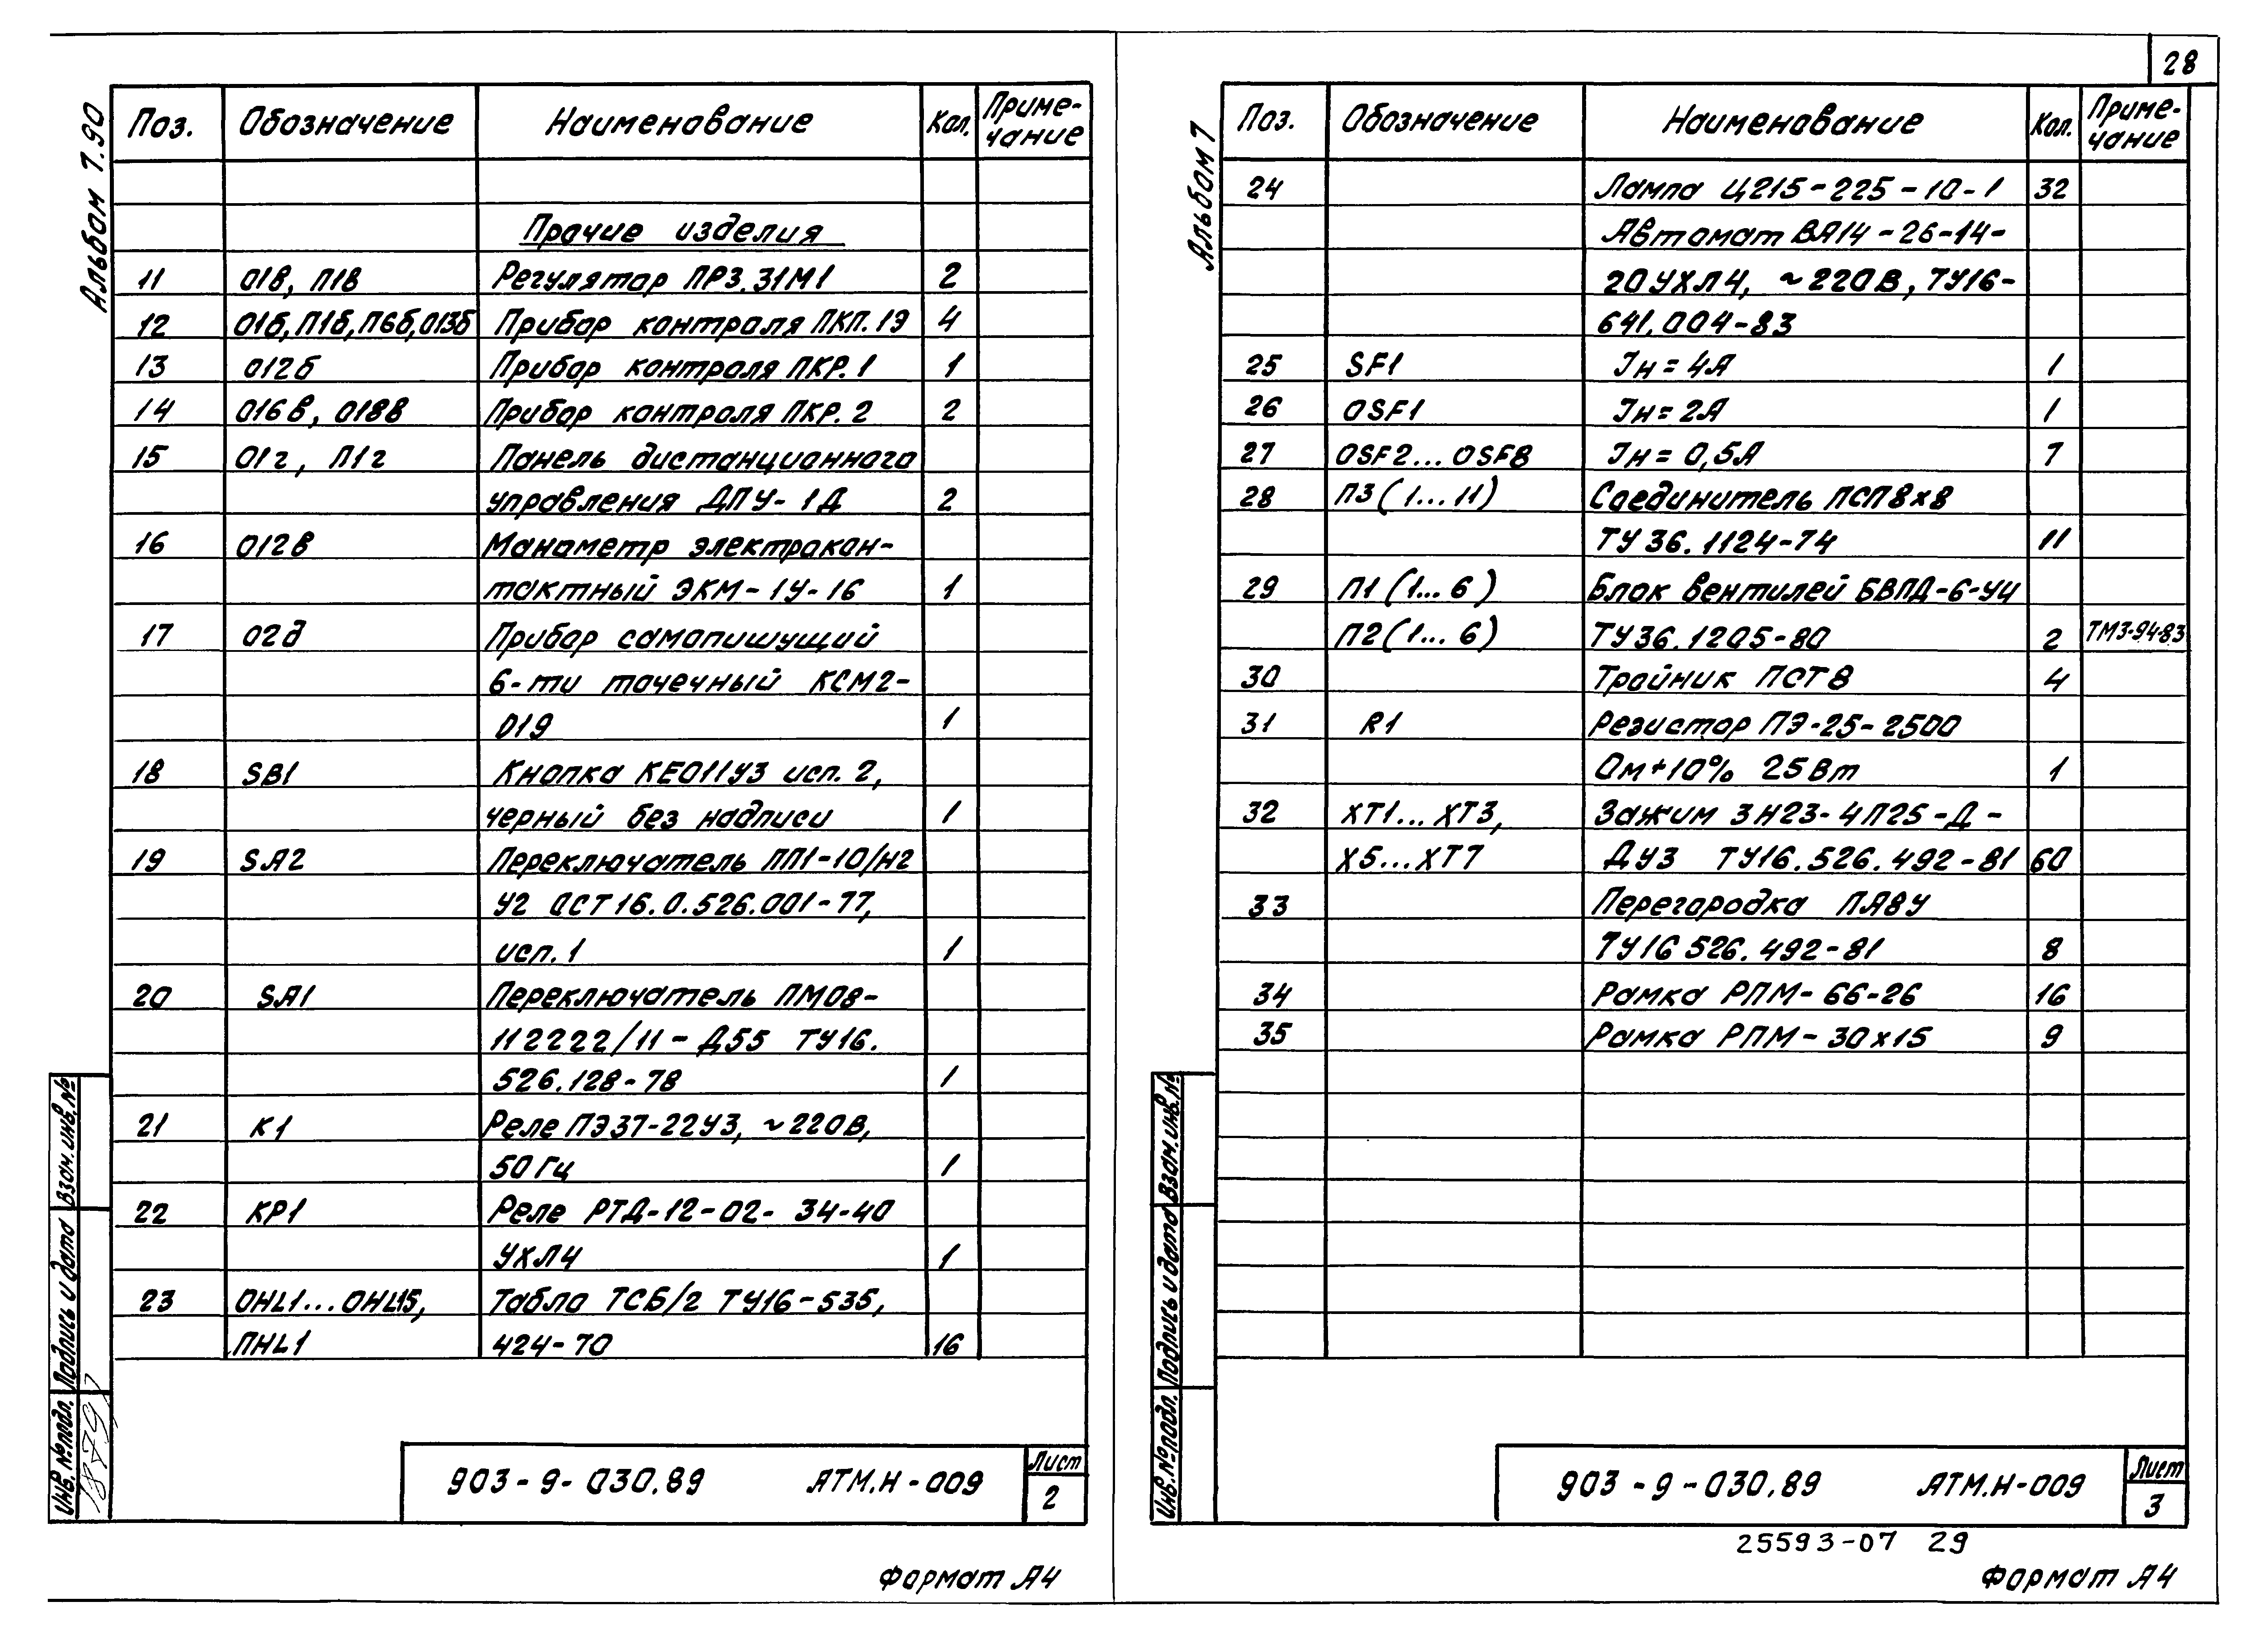 Альбом 7.90
Поз. Обозначение Наименование Кол. Приме-
чание
Прочие изделия
11 01в, П1в Регулятор ПР3.31М1 2
12 01б, П1б, П6б, 013б Прибор контроля ПКП.1Э 4
13 012б Прибор контроля ПКР.1 1
14 016в, 018в Прибор контроля ПКР.2 2
15 01г, П1г Панель дистанционного
управления ДПУ-1Д 2
16 012в Манометр электрокон-
тактный ЭКМ-1У-16 1
17 02д Прибор самопишущий
6-ти точечный КСМ2-
019 1
18 SB1 Кнопка КЕ011У3 исп. 2,
черный без надписи 1
19 SA2 Переключатель ПП1-10/Н2
У2 ОСТ16.0.526.001-77,
исп. 1 1
20 SA1 Переключатель ПМО8-
112222/11-Д55 ТУ16.
526.128-78 1
21 К1 Реле ПЭ37-22У3, ~220В,
50Гц 1
22 КР1 Реле РТД-12-02-34-40
УХЛ4 1
23 ОHL1...ОHL15, Табло ТСБ/2 ТУ16-535,
ПHL1 424-70 16
Взам. инв. №
Подпись и дата
Инв. № подл.
903-9-030.89 АТМ.Н-009 Лист
2
Формат А4
28
Альбом 7
Поз. Обозначение Наименование Кол. Приме-
чание
24 Лампа Ц215-225-10-1 32
Автомат ВА14-26-14-
20УХЛ4, ~220В, ТУ16-
641.004-83
25 SF1 Jн=4А 1
26 OSF1 Jн=2А 1
27 OSF2...OSF8 Jн=0,5А 7
28 П3(1...11) Соединитель ПСП8х8
ТУ36.1124-74 11
29 П1(1...6) Блок вентилей БВПД-6-У4
П2(1...6) ТУ36.1205-80 2 ТМ3-94-83
30 Тройник ПСТ8 4
31 R1 Резистор ПЭ-25-2500
Ом+10% 25Вт 1
32 ХТ1...ХТ3, Зажим ЗН23-4П25-Д-
Х5...ХТ7 ДУ3 ТУ16.526.492-81 60
33 Перегородка ПА8У
ТУ16 526.492-81 8
34 Рамка РПМ-66-26 16
35 Рамка РПМ-30х15 9
Взам. инв. №
Подпись и дата
Инв. № подл.
903-9-030.89 АТМ.Н-009 Лист
3
25593-07 29
Формат А4